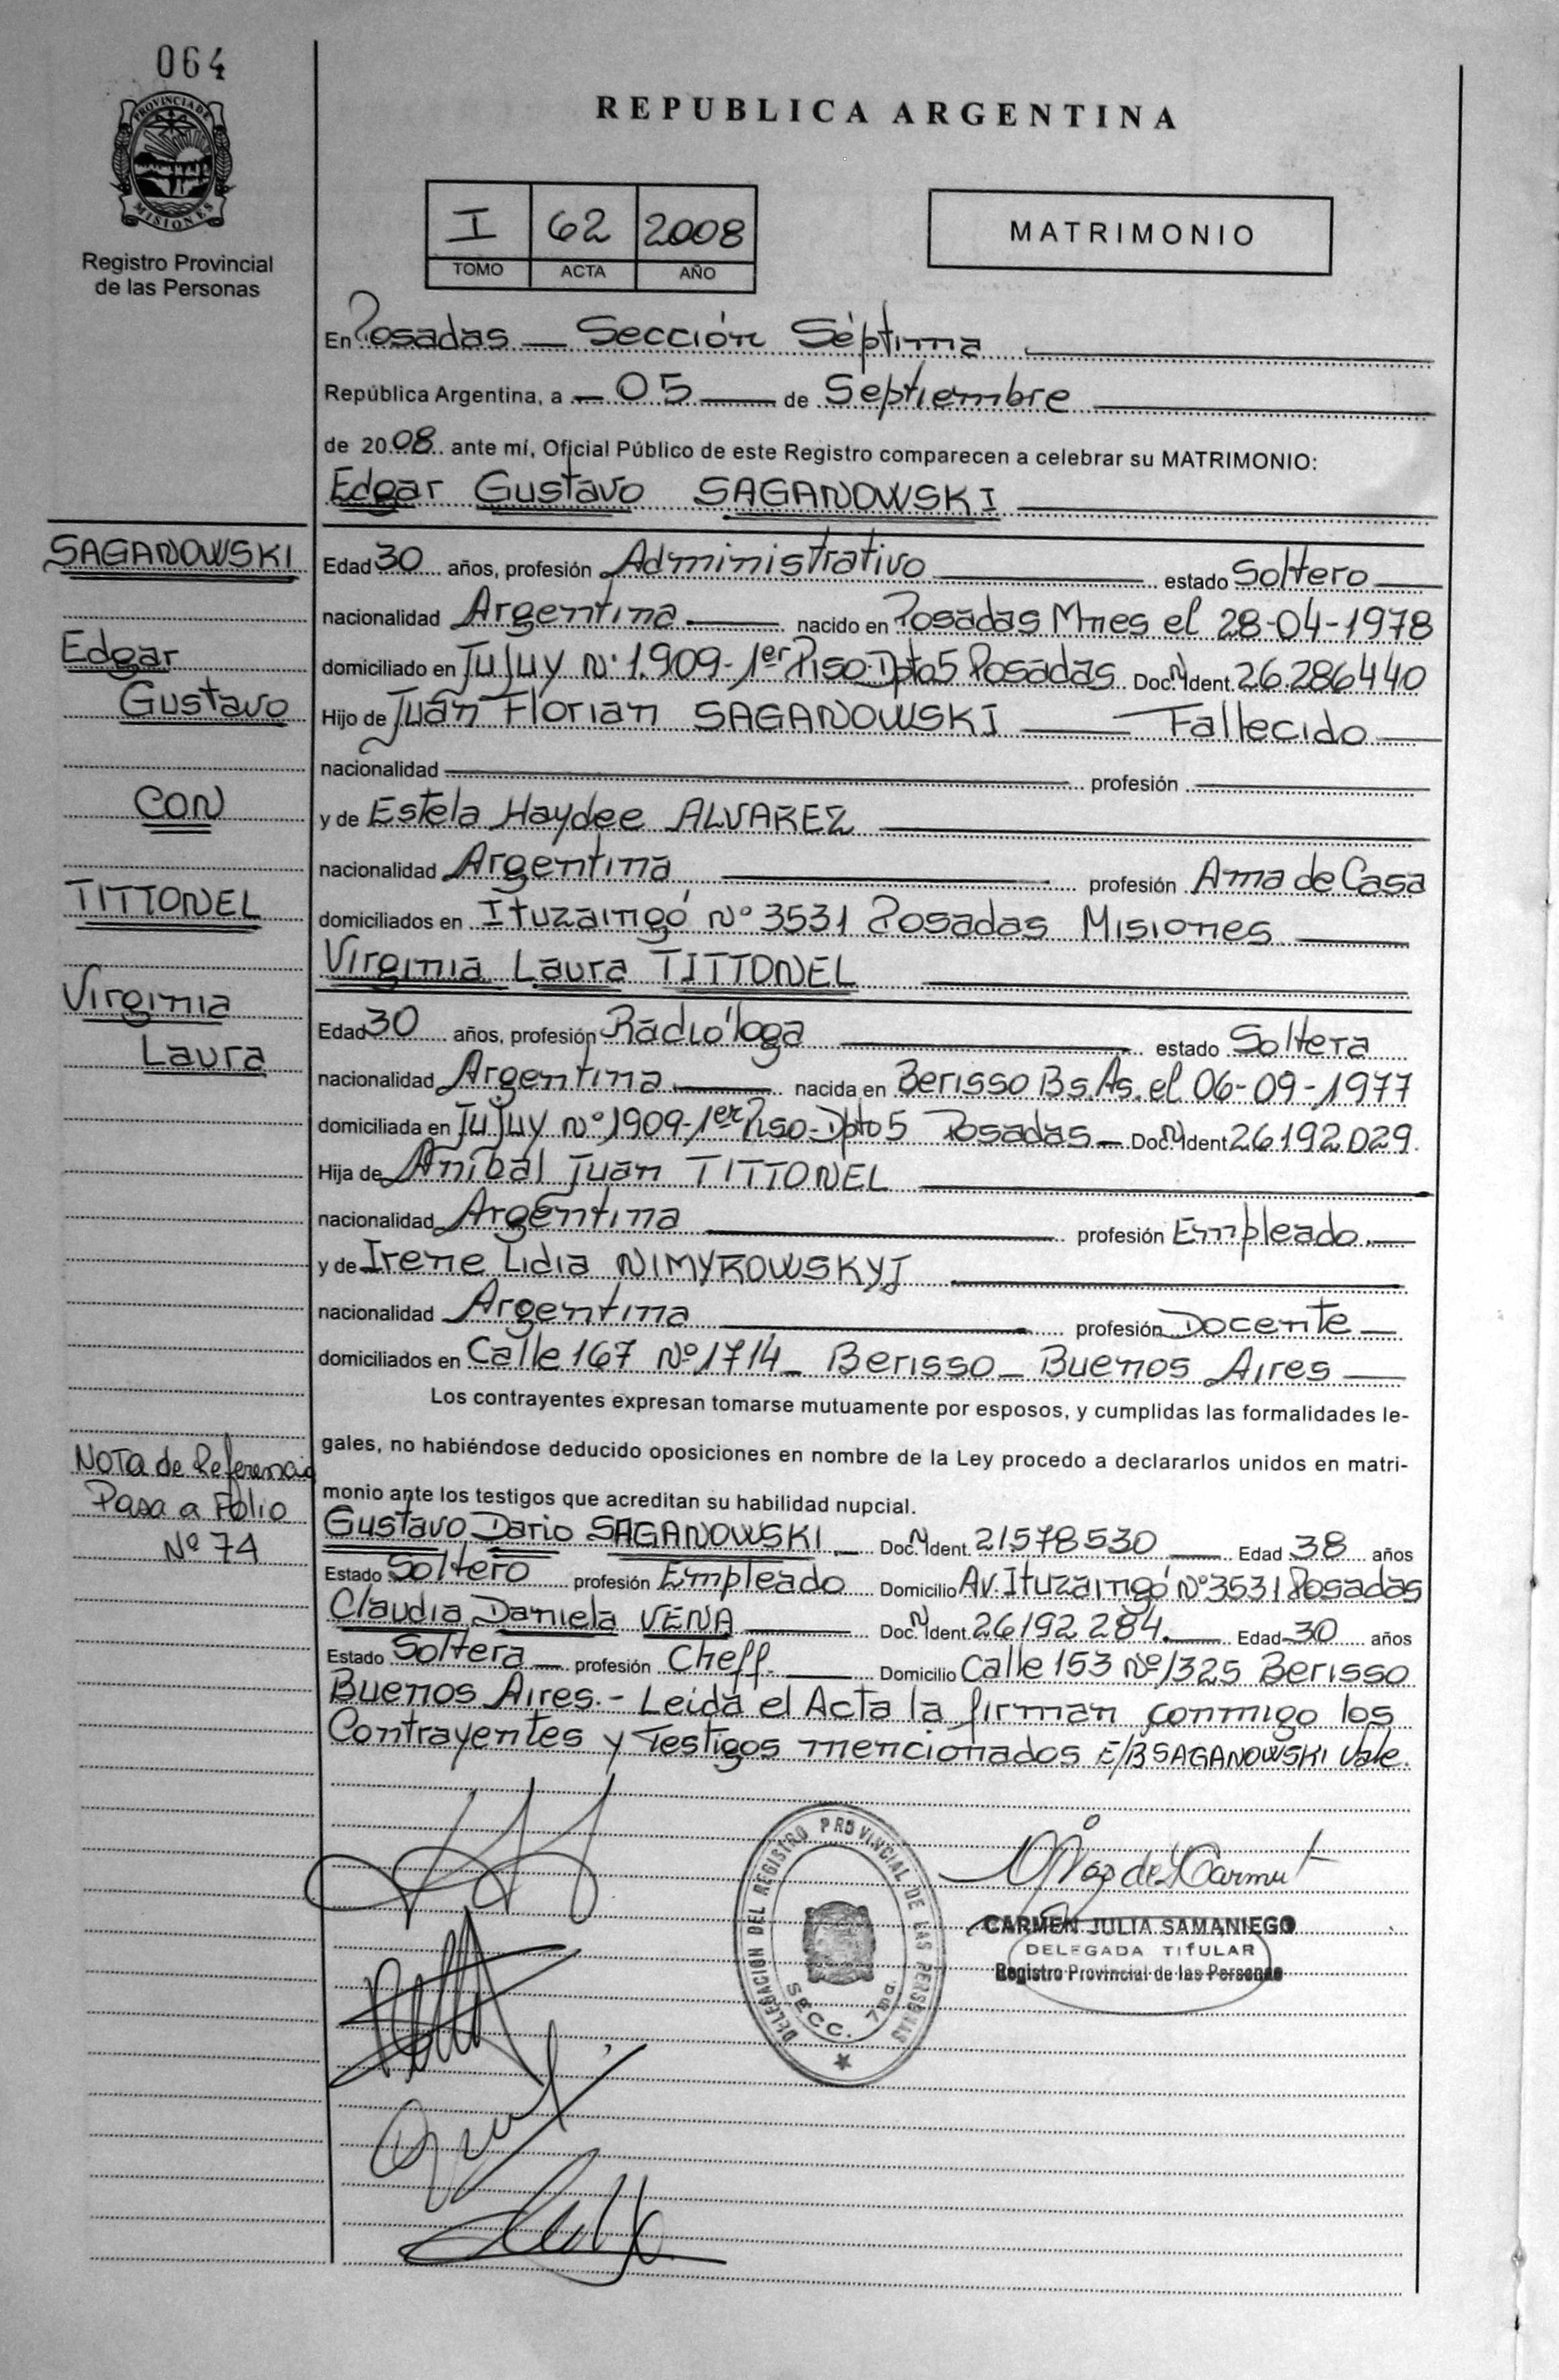 064
PROVINCIA DE
MISIONES
Registro Provincial
de las Personas
REPUBLICA ARGENTINA
I 62 2008
TOMO ACTA AÑO
MATRIMONIO
En Posadas — Sección Séptima
República Argentina, a — 05 — de Septiembre
de 2008 ante mí, Oficial Público de este Registro comparecen a celebrar su MATRIMONIO:
Edgar Gustavo SAGANOWSKI
SAGANOWSKI
Edgar
Gustavo
CON
TITTONEL
Virginia
Laura
Edad 30 años, profesión Administrativo estado Soltero
nacionalidad Argentina nacido en Posadas Mnes el 28-04-1978
domiciliado en Jujuy Nº 1.909-1er Piso-Dpto 5 Posadas Doc. N. Ident. 26.286440
Hijo de Juan Florian SAGANOWSKI — Fallecido
nacionalidad profesión
y de Estela Haydee ALVAREZ
nacionalidad Argentina profesión Ama de Casa
domiciliados en Ituzaingó Nº 3531 Posadas Misiones
Virginia Laura TITTONEL
Edad 30 años, profesión Radióloga estado Soltera
nacionalidad Argentina nacida en Berisso Bs.As. el 06-09-1977
domiciliada en Jujuy Nº 1909-1er Piso-Dpto 5 Posadas — Doc. N. Ident 26192029.
Hija de Anibal Juan TITTONEL
nacionalidad Argentina profesión Empleado
y de Irene Lidia NIMYROWSKYJ
nacionalidad Argentina profesión Docente
domiciliados en Calle 167 Nº 1714 — Berisso — Buenos Aires
Los contrayentes expresan tomarse mutuamente por esposos, y cumplidas las formalidades le-
gales, no habiéndose deducido oposiciones en nombre de la Ley procedo a declararlos unidos en matri-
monio ante los testigos que acreditan su habilidad nupcial.
NOTA de Referencia
Pasa a Folio
Nº 74
Gustavo Dario SAGANOWSKI Doc. N. Ident. 21578530 Edad 38 años
Estado Soltero profesión Empleado Domicilio Av. Ituzaingó Nº 3531 Posadas
Claudia Daniela VENA Doc. N. Ident. 26192284. Edad 30 años
Estado Soltera profesión Cheff. Domicilio Calle 153 Nº 1325 Berisso
Buenos Aires.- Leida el Acta la firman conmigo los
Contrayentes y Testigos mencionados E/B SAGANOWSKI Vale.
DELEGACION DEL REGISTRO PROVINCIAL DE LAS PERSONAS
SECC. 7ma
CARMEN JULIA SAMANIEGO
DELEGADA TITULAR
Registro Provincial de las Personas